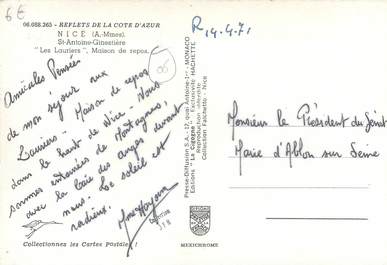 6€
06.088.365 - REFLETS DE LA COTE D'AZUR
NICE (A.-Mmes).
St-Antoine-Ginestière
"Les Lauriers", Maison de repos.
R 14.4.71
Amicales Pensées
de mon séjour aux
Lauriers - Maison de repos
dans le haut de Nice - Nous
sommes entourées de Montagnes,
avec la baie des anges devant
nous. Le soleil est
radieux.
06
Presse-Diffusion S.A. - 17, quai Antoine-1er - MONACO
Editions "La Cigogne" - Exclusivité HACHETTE
Reproduction interdite
Collection Falchetto - Nice
Monsieur le Président du
Mairie d'Ablon sur Seine
Collectionnez les Cartes Postales !
MEXICHROME